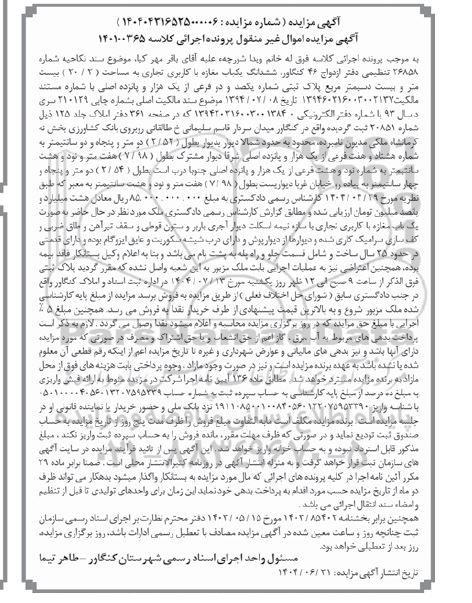 آگهی مزایده (شماره مزایده : ۱۴۰۴۰۴۲۱۶۵۲۵۰۰۰۰۰۶)
آگهی مزایده اموال غیر منقول پرونده اجرائی کلاسه ۱۴۰۱۰۰۳۶۵
به موجب پرونده اجرائی کلاسه فوق له خانم ویدا شررجه علیه آقای باقر مهر کیا، موضوع سند نکاحیه شماره
۲۶۸۵۸ تنظیمی دفتر ازدواج ۴۶ کنگاور، ششدانگ یکباب مغازه با کاربری تجاری به مساحت (۲۰/۲) بیست
متر و بیست دسیمتر مربع پلاک ثبتی شماره یکصد و دو فرعی از یک هزار و پانزده اصلی با شماره مستند
مالکیت ۱۳۹۴۶۰۲۱۶۰۰۳۰۰۲۱۳۷ تاریخ ۱۳۹۴/۰۷/۰۸ موضوع سند مالکیت اصلی بشماره چاپی ۲۱۰۱۲۹ سری
د سال ۹۳ با شماره دفتر الکترونیکی ۱۳۹۴۲۰۲۱۶۰۰۳۰۰۱۳۸۴ که در صفحه ۳۶۱ دفتر املاک جلد ۱۲۵ ذیل
شماره ۲۰۸۵۱ ثبت گردیده واقع در کنگاور میدان سردار قاسم سلیمانی خ طالقانی روبروی بانک کشاورزی بخش نه
کرمانشاه ملکی مدیون نامبرده، محدود به حدود شمالا دیوار بدیوار بطول (۲/۵۲) دو متر و پنجاه و دو سانتیمتر به
شماره هشتاد و هفت فرعی از یک هزار و پانزده اصلی شرقا دیوار مشترک بطول (۷/۹۸) هفت متر و نود و هشت
سانتیمتر به شماره نود و هشت فرعی از یک هزار و پانزده اصلی جنوبا درب است بطول (۲/۵۴) دو متر و پنجاه و
چهار سانتیمتر به پیاده رو خیابان غربا دیواریست بطول (۷/۹۸) هفت متر و نود و هشت سانتیمتر به معبر که طبق
نظریه مورخ ۱۴۰۴/۰۴/۲۹ کارشناس رسمی دادگستری به مبلغ ۸۵.۰۰۰.۰۰۰.۰۰۰ ریال معادل هشت میلیارد و
پانصد میلیون تومان ارزیابی شده و مطابق گزارش کارشناس رسمی دادگستری ملک مورد نظر در حال حاضر به صورت
یک باب مغازه با کاربری تجاری با سازه نیمه اسکلت دیوار آجری باربر و ستون قوطی و سقف تیرآهن و طاق ضربی و
کف سازی سرامیک کاری شده و دیوارها از دیوارپوش و دارای درب شیشه سکوریت و عایق ایزوگام بوده و دارای قدمتی
در حدود ۲۵ سال ساخت و شامل قسمت جلو و راه پله به پشت بام می باشد و بنا به اعلام وکیل بستانکار فاقد بیمه
بوده، همچنین اعتراضی نیز به عملیات اجرایی بابت ملک مزبور به این شعبه واصل نشده که مقرر گردید پلاک ثبتی
فوق الذکر از ساعت ۹ صبح الی ۱۲ ظهر روز یکشنبه مورخ ۱۴۰۴/۰۷/۱۳ در اداره ثبت اسناد و املاک کنگاور واقع
در جنب دادگستری سابق (شورای حل اختلاف فعلی) از طریق مزایده به فروش برسد. مزایده از مبلغ پایه کارشناسی
شده ملک مزبور شروع و به بالاترین قیمت پیشنهادی از طرف خریدار نقدا به فروش می رسد. همچنین مبلغ ۵٪
اجرایی یا مبلغ حق مزایده که در روز برگزاری مزایده محاسبه و اعلام میشود نقدا وصول می گردد. لازم به ذکر است
پرداخت بدهی های مربوط به آب برق، گاز اعم از حق انشعاب و یا حق اشتراک و مصرف در صورتی که مورد مزایده
دارای آنها باشد و نیز بدهی های مالیاتی و عوارض شهرداری و غیره تا تاریخ مزایده اعم از اینکه رقم قطعی آن معلوم
شده یا نشده باشد به عهده برنده مزایده است و نیز در صورت وجود مازاد، وجوه پرداختی بابت هزینه های فوق از محل
مازاد به برنده مزایده مسترد خواهد شد. مطابق ماده ۱۳۶ آیین نامه اجرا شرکت در مزایده منوط به ارائه فیش واریزی
به مبلغ ده درصد از مبلغ پایه کارشناسی به حساب سپرده ثبت به شماره حساب
با شناسه واریز نزد بانک ملی و حضور خریدار یا نماینده قانونی او در
جلسه مزایده است. برنده مزایده مکلف است مابه التفاوت مبلغ فروش را ظرف مدت پنج روز از تاریخ مزایده به حساب
صندوق ثبت تودیع نماید و در صورتی که ظرف مهلت مقرر، مانده فروش را به حساب سپرده ثبت واریز نکند، مبلغ
مذکور قابل استرداد نبوده و به حساب خزانه واریز خواهد شد. این آگهی پس از تائید فرآیند مزایده در سایت آگهی
های سازمان ثبت قرار خواهد گرفت و به منزله انتشار آگهی در روزنامه کثیرالانتشار محلی است. ضمنا برابر ماده ۲۹
مکرر آئین نامه اجرا در کلیه پرونده های اجرائی که مال مورد مزایده به بستانکار واگذار میشود بدهکار می تواند ظرف
دو ماه از تاریخ مزایده حسب مورد اقدام به پرداخت بدهی خود نماید این زمان برای واحدهای تولیدی تا قبل از تنظیم
و امضاء سند انتقال اجرائی می باشد.
همچنین برابر بخشنامه ۱۴۰۲/۸۵۴۰۲ مورخ ۱۴۰۲/۰۵/۱۵ دفتر محترم نظارت بر اجرای اسناد رسمی سازمان
ثبت چنانچه روز و ساعت معین شده در آگهی مزایده مصادف با تعطیل رسمی ادارات باشد، روز برگزاری مزایده،
روز بعد از تعطیلی خواهد بود.
مسئول واحد اجرای اسناد رسمی شهرستان کنگاور – طاهر تیما
تاریخ انتشار آگهی مزایده: ۱۴۰۴/۰۶/۲۱